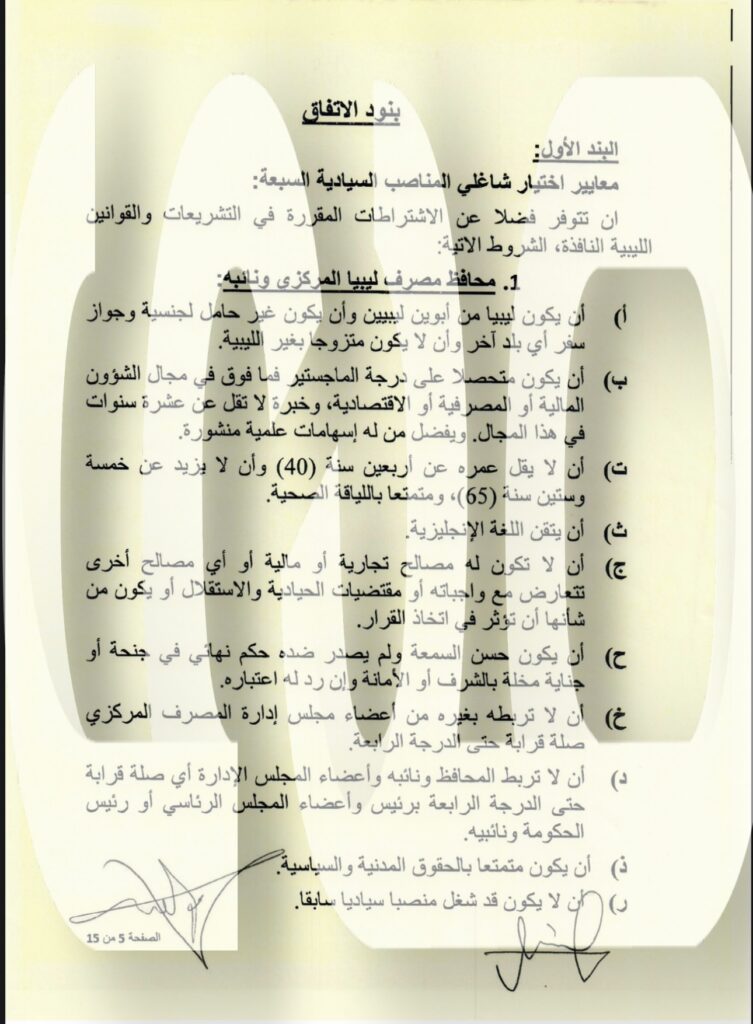 بنود الاتفاق
البند الأول:
معايير اختيار شاغلي المناصب السيادية السبعة:
ان تتوفر فضلا عن الاشتراطات المقررة في التشريعات والقوانين
الليبية النافذة، الشروط الاتية:
1. محافظ مصرف ليبيا المركزي ونائبه:
أ) أن يكون ليبيا من أبوين ليبيين وأن يكون غير حامل لجنسية وجواز
سفر أي بلد آخر وأن لا يكون متزوجا بغير الليبية.
ب) أن يكون متحصلا على درجة الماجستير فما فوق في مجال الشؤون
المالية أو المصرفية أو الاقتصادية، وخبرة لا تقل عن عشرة سنوات
في هذا المجال. ويفضل من له إسهامات علمية منشورة.
ت) أن لا يقل عمره عن أربعين سنة (40) وأن لا يزيد عن خمسة
وستين سنة (65)، ومتمتعا باللياقة الصحية.
ث) أن يتقن اللغة الإنجليزية.
ج) أن لا تكون له مصالح تجارية أو مالية أو أي مصالح أخرى
تتعارض مع واجباته أو مقتضيات الحيادية والاستقلال أو يكون من
شأنها أن تؤثر في اتخاذ القرار.
ح) أن يكون حسن السمعة ولم يصدر ضده حكم نهائي في جنحة أو
جناية مخلة بالشرف أو الأمانة وإن رد له اعتباره.
خ) أن لا تربطه بغيره من أعضاء مجلس إدارة المصرف المركزي
صلة قرابة حتى الدرجة الرابعة.
د) أن لا تربط المحافظ ونائبه وأعضاء المجلس الإدارة أي صلة قرابة
حتى الدرجة الرابعة برئيس وأعضاء المجلس الرئاسي أو رئيس
الحكومة ونائبيه.
ذ) أن يكون متمتعا بالحقوق المدنية والسياسية.
ر) أن لا يكون قد شغل منصبا سياديا سابقا.
الصفحة 5 من 15